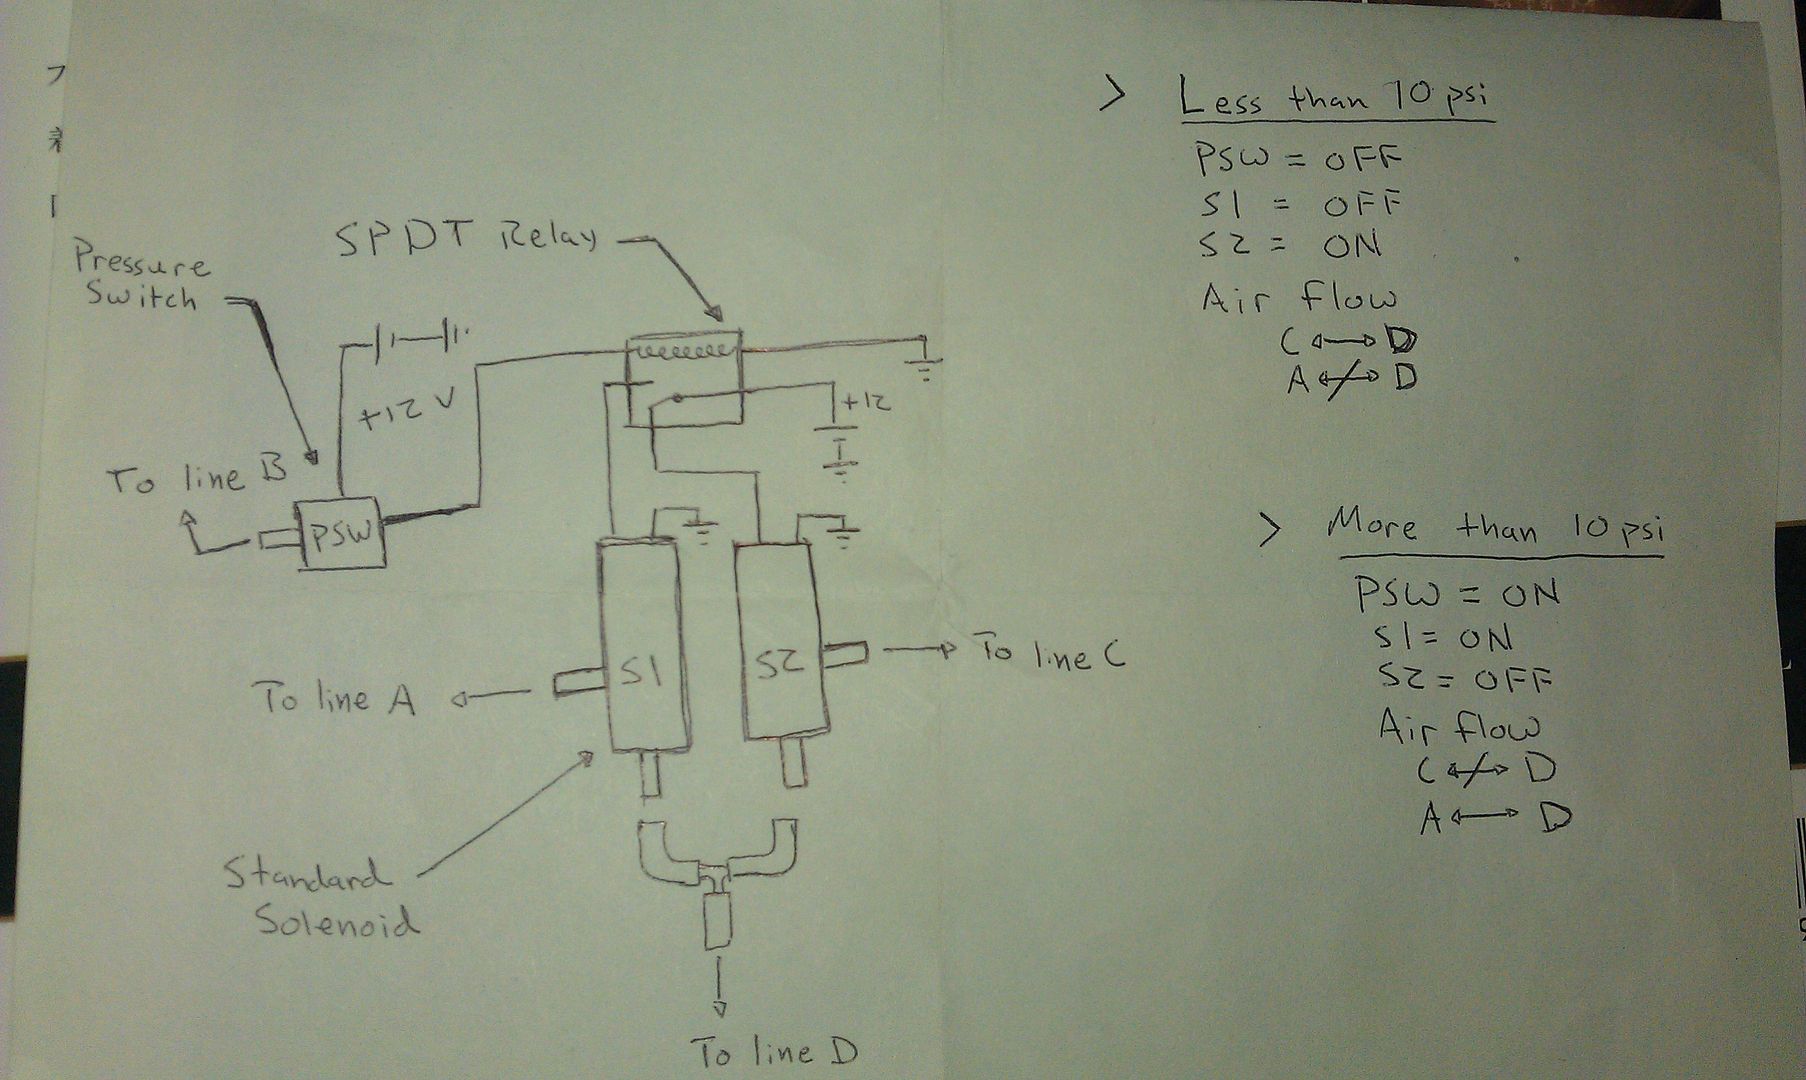 SPDT Relay
Pressure
Switch
+12 V
+12
To line B
PSW
S1
S2
To line C
To line A
Standard
Solenoid
To line D
> Less than 10 psi
PSW = OFF
S1 = OFF
S2 = ON
Air flow
C ↔ D
A ↮ D
> More than 10 psi
PSW = ON
S1 = ON
S2 = OFF
Air flow
C ↮ D
A ↔ D